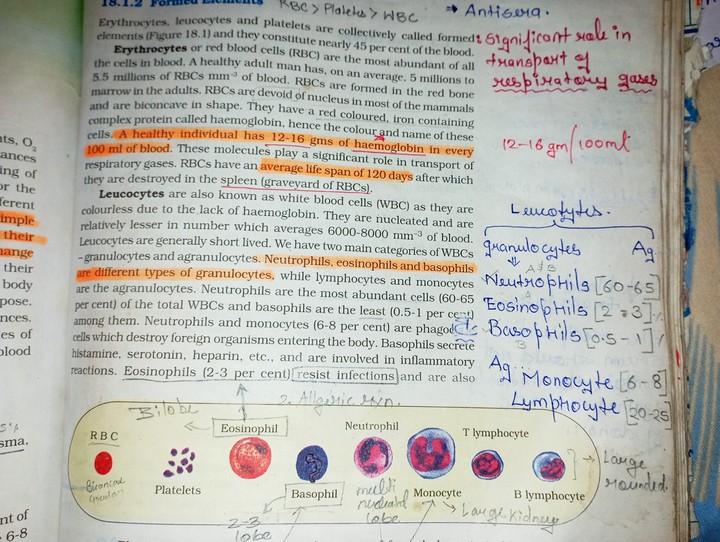 18.1.2 Formed Elements
RBC > Platelets > WBC
⇒ Antisera.
Erythrocytes, leucocytes and platelets are collectively called formed
elements (Figure 18.1) and they constitute nearly 45 per cent of the blood.
Erythrocytes or red blood cells (RBC) are the most abundant of all
the cells in blood. A healthy adult man has, on an average, 5 millions to
5.5 millions of RBCs mm⁻³ of blood. RBCs are formed in the red bone
marrow in the adults. RBCs are devoid of nucleus in most of the mammals
and are biconcave in shape. They have a red coloured, iron containing
complex protein called haemoglobin, hence the colour and name of these
cells. A healthy individual has 12-16 gms of haemoglobin in every
100 ml of blood. These molecules play a significant role in transport of
respiratory gases. RBCs have an average life span of 120 days after which
they are destroyed in the spleen (graveyard of RBCs).
Leucocytes are also known as white blood cells (WBC) as they are
colourless due to the lack of haemoglobin. They are nucleated and are
relatively lesser in number which averages 6000-8000 mm⁻³ of blood.
Leucocytes are generally short lived. We have two main categories of WBCs
- granulocytes and agranulocytes. Neutrophils, eosinophils and basophils
are different types of granulocytes, while lymphocytes and monocytes
are the agranulocytes. Neutrophils are the most abundant cells (60-65
per cent) of the total WBCs and basophils are the least (0.5-1 per cent)
among them. Neutrophils and monocytes (6-8 per cent) are phagocytic
cells which destroy foreign organisms entering the body. Basophils secrete
histamine, serotonin, heparin, etc., and are involved in inflammatory
reactions. Eosinophils (2-3 per cent) resist infections and are also
Significant role in
transport of
respiratory gases
12-16 gm/100ml
Leucocytes.
granulocytes Ag
Neutrophils [60-65]
Eosinophils [2-3]
Basophils [0.5-1]
Ag Monocyte [6-8]
Lymphocyte [20-25]
nts, O₂
ances
ing of
or the
ferent
imple
their
ange
their
body
pose.
nces.
es of
blood
sma,
nt of
6-8
Bilobe
2. Allergic rxn.
RBC
Eosinophil
Neutrophil
T lymphocyte
Biconcave
circular
Platelets
Basophil
multi
nucleated
lobe
Monocyte
B lymphocyte
Large
rounded.
2-3
lobe
Large kidney